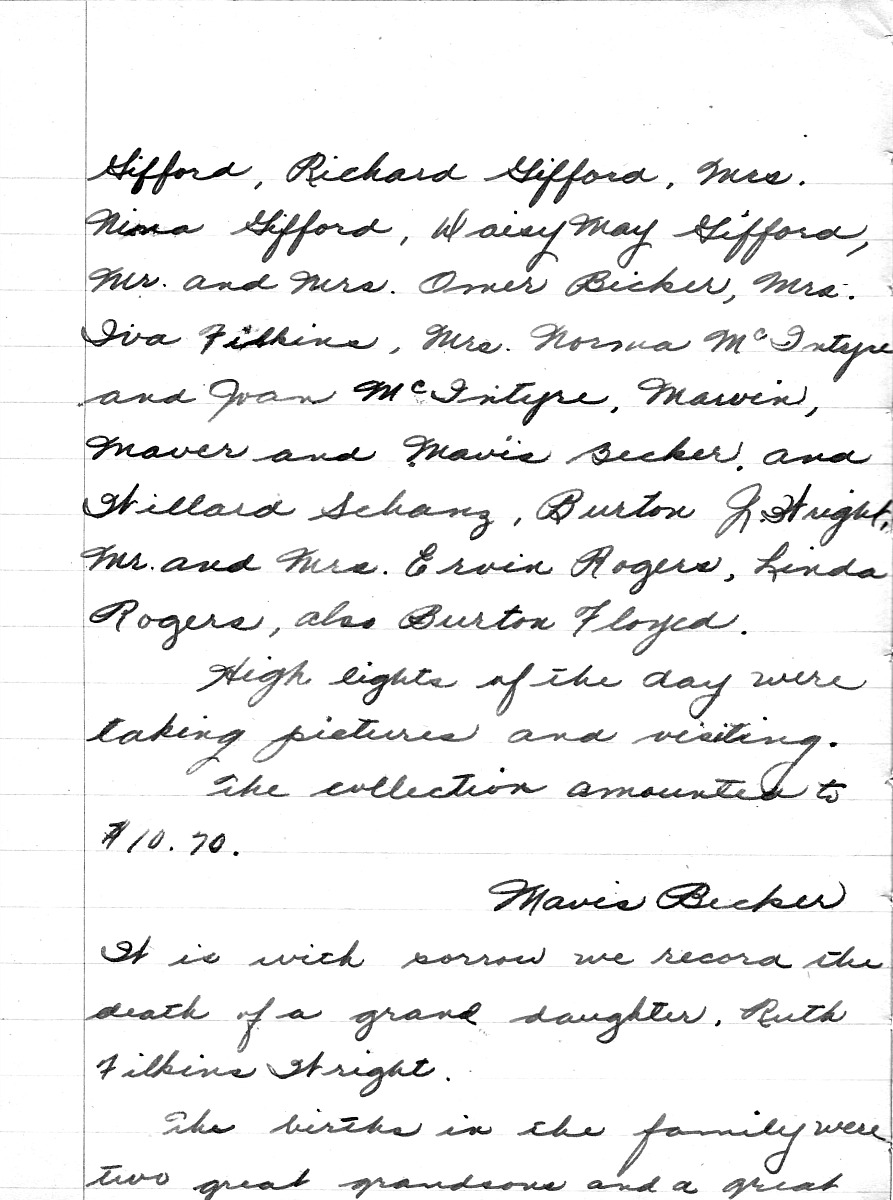 Gifford, Richard Gifford, Mrs.
Nina Gifford, Daisy May Gifford,
Mr. and Mrs. Omer Becker, Mrs.
Iva Filkins, Mrs. Norma McIntyre
and Joan McIntyre, Marvin,
Maver and Mavis Becker, and
Willard Schanz, Burton J. Wright,
Mr. and Mrs. Ervin Rogers, Linda
Rogers, also Burton Floyed.
High lights of the day were
taking pictures and visiting.
The collection amounted to
$10.70.
Mavis Becker
It is with sorrow we record the
death of a grand daughter, Ruth
Filkins Wright.
The births in the family were
two great grandsons and a great